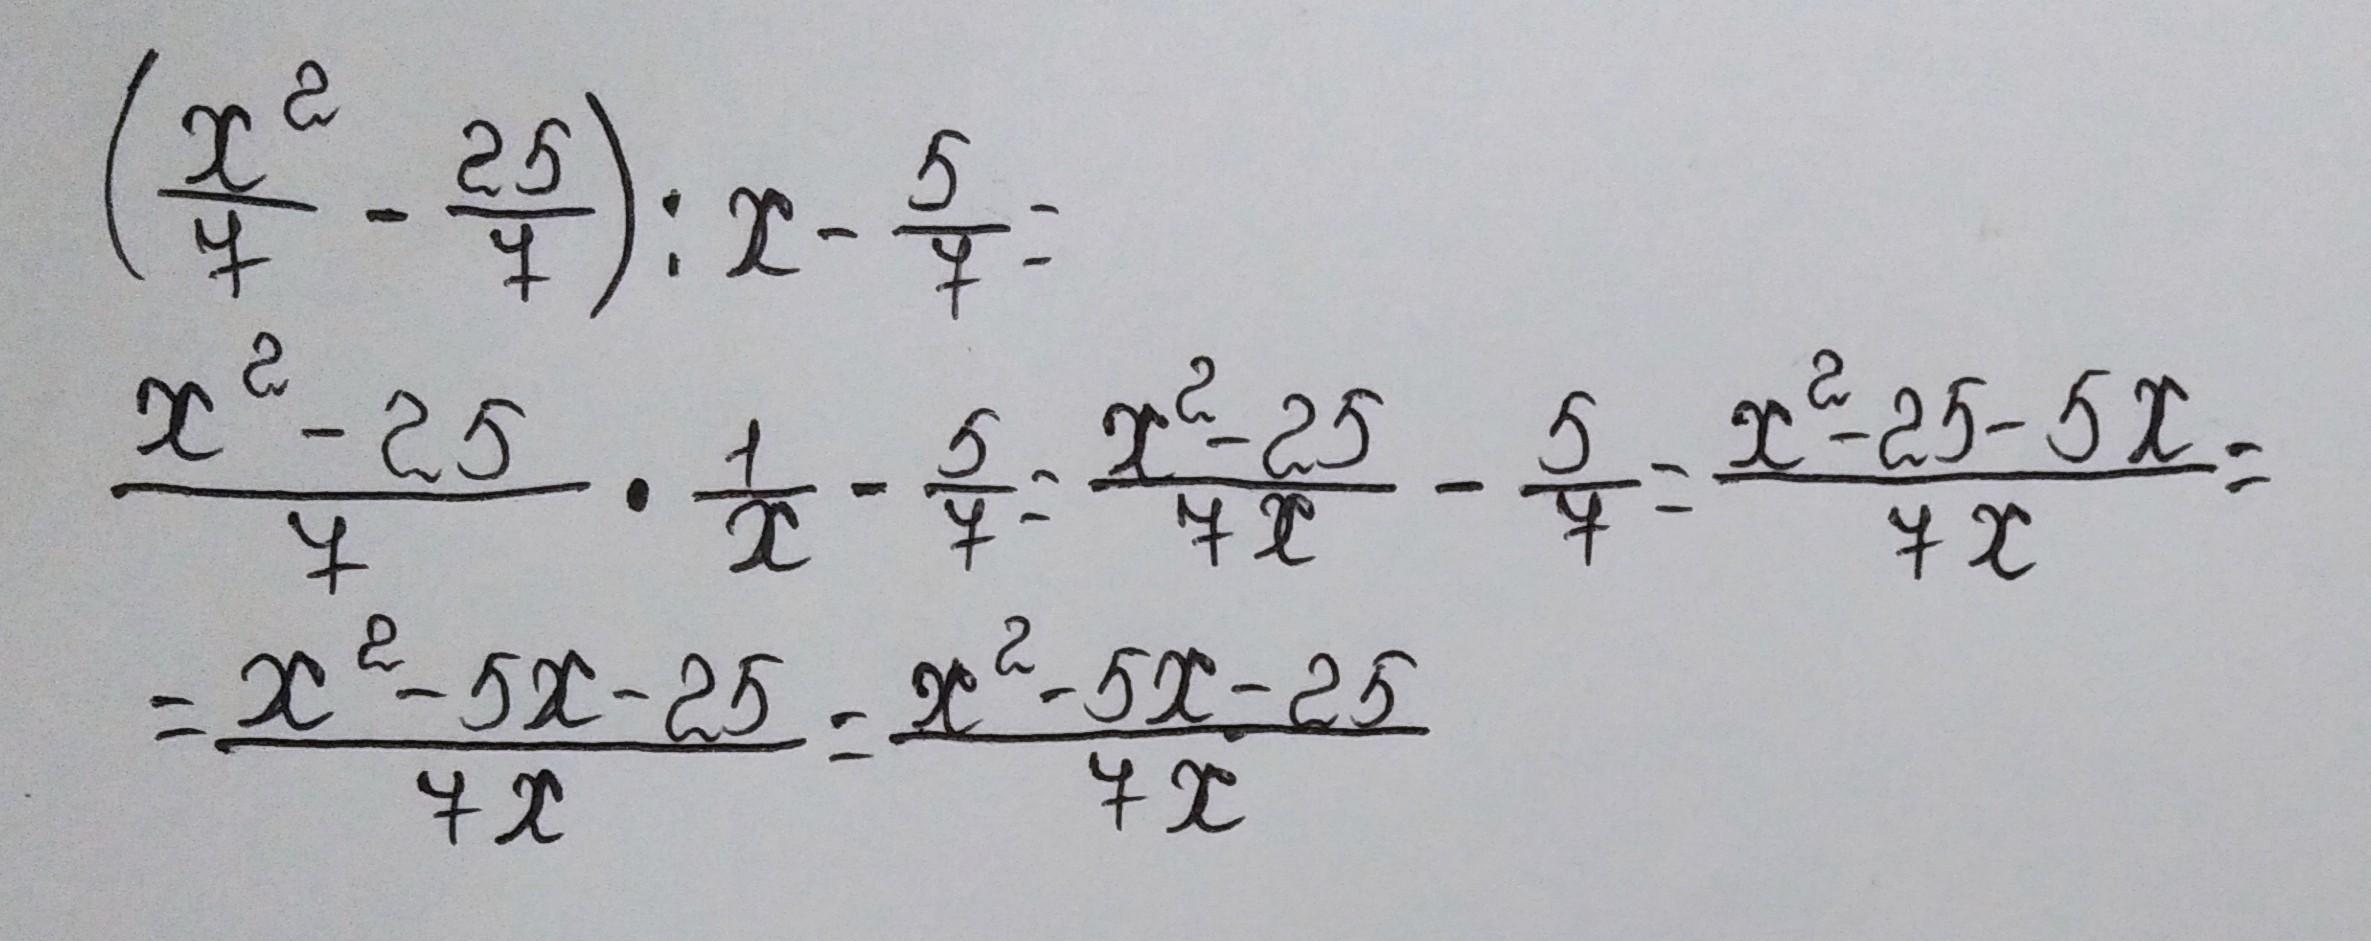 (x²/7 - 25/7) : x - 5/7 =
(x² - 25)/7 · 1/x - 5/7 = (x² - 25)/(7x) - 5/7 = (x² - 25 - 5x)/(7x) =
= (x² - 5x - 25)/(7x) = (x² - 5x - 25)/(7x)